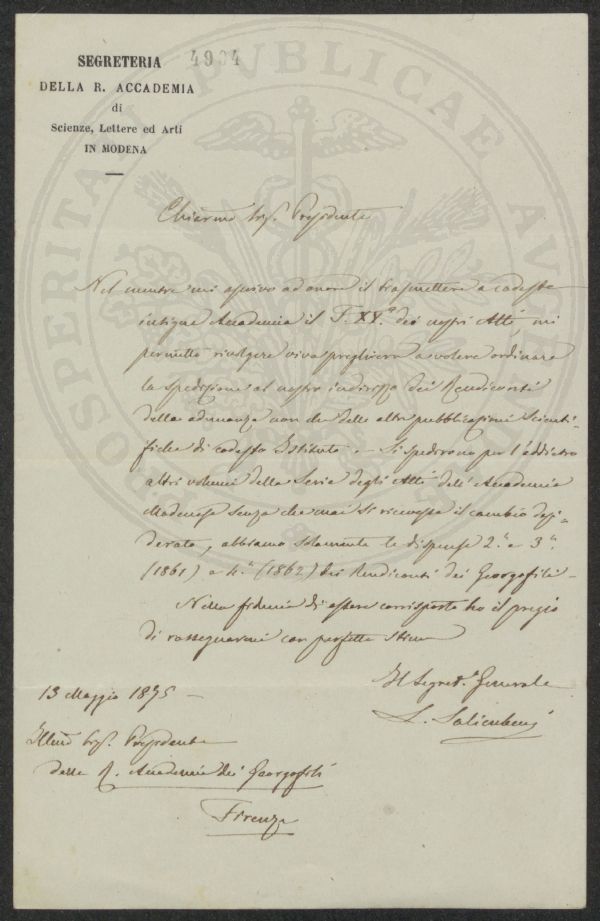 SEGRETERIA
4904
DELLA R. ACCADEMIA
di
Scienze, Lettere ed Arti
IN MODENA
PROSPERITATI PVBLICAE AVGENDAE
Chiarmo Sigr. Presidente
Nel mentre mi ascrivo ad onore il trasmettere a codesta
insigne Accademia il T. XV.° dei nostri Atti, mi
permetto rivolgere viva preghiera a volere ordinare
la spedizione al nostro indirizzo dei Rendiconti
delle adunanze non che delle altre pubblicazioni scienti-
fiche di codesto Istituto. - Si spedirono per l'addietro
altri volumi della Serie degli Atti dell'Accademia
Modenese senza che mai si ricevesse il cambio desi-
derato, abbiamo solamente le dispense 2.a e 3.a
(1861) e 4.a (1862) dei Rendiconti dei Georgofili -
Nella fiducia di essere corrisposto ho il pregio
di rassegnarmi con perfetta stima
Il Segret.° Generale
L. Salimbeni
13 Maggio 1875 -
Illmo Sigr. Presidente
della R. Accademia dei Georgofili
Firenze